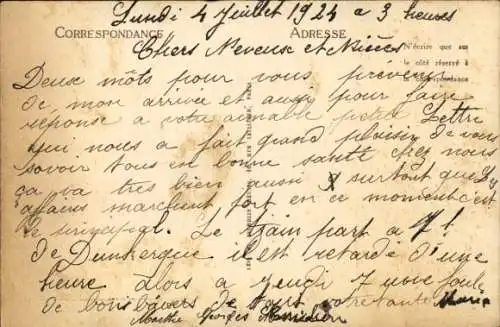 Lundi 4 Juillet 1924 a 3 heures
CORRESPONDANCE ADRESSE
Chers Neveux et Nièces
N'écrire que sur
le côté réservé à
la correspondance
Deux môts pour vous prévenir
de mon arrivée et aussi pour faire
reponse a votre aimable petite Lettre
qui nous a fait grand plaisir de vous
savoir tous en bonne santé chez nous
ça va très bien aussi & surtout que Les
affaires marchent fort en ce moment c'est
le principal. Le train part a 7 h
de Dunkerque il est retardé d'une
heure alors a Jeudi 7 une foule
de bons baisers de tous votre tante Marie
Marthe Georges